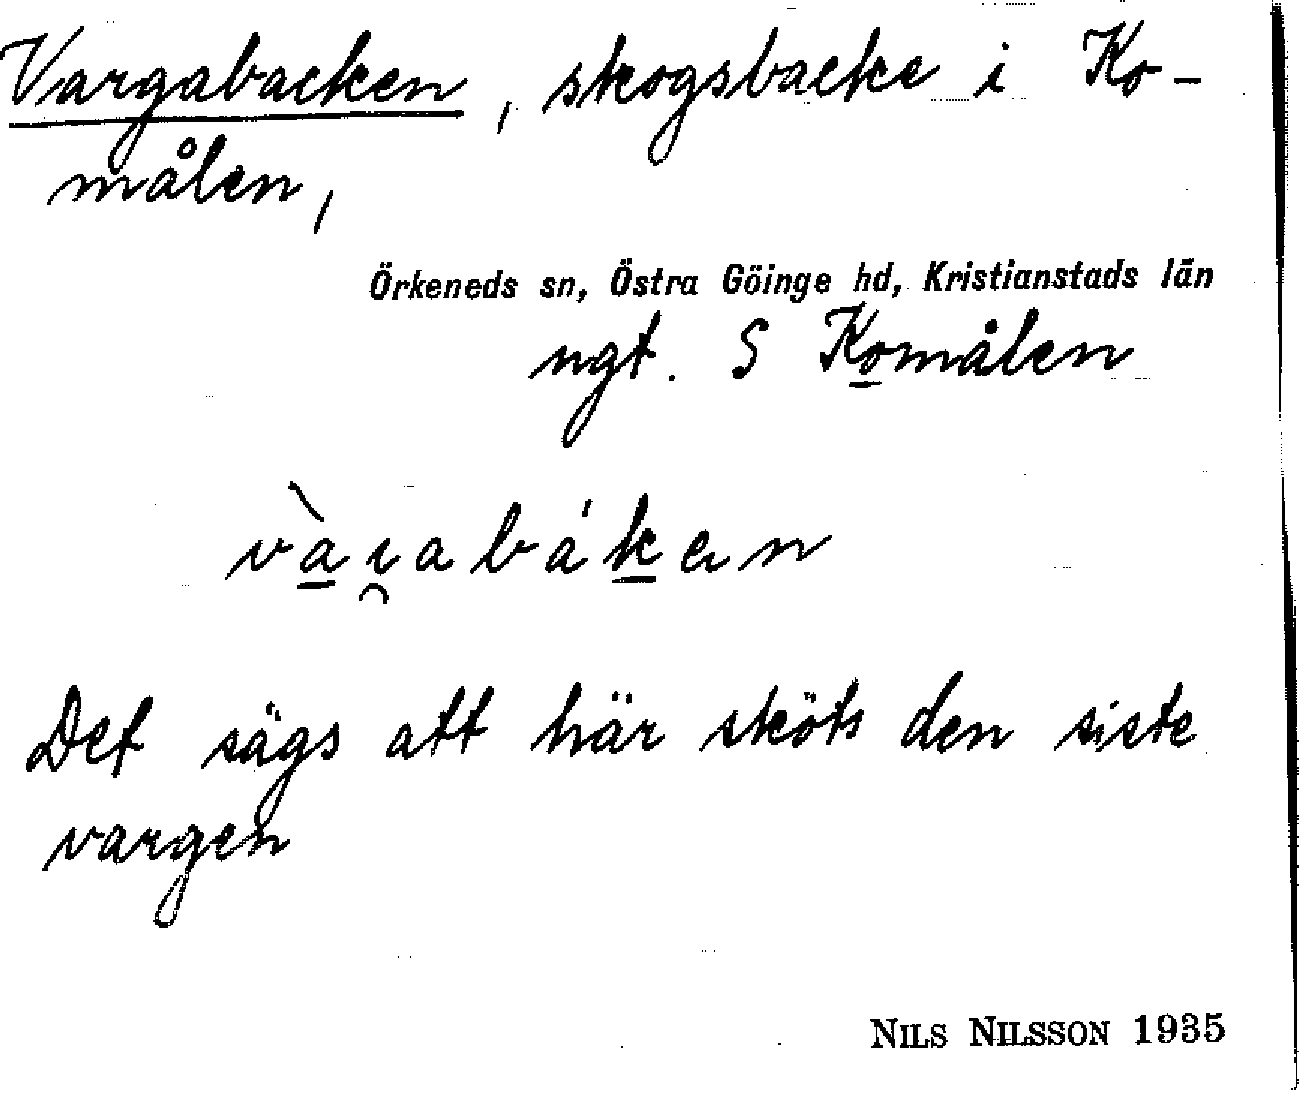 Vargabacken, skogsbacke i Ko-
målen,
Örkeneds sn, Östra Göinge hd, Kristianstads län
ngt. S Komålen
vàɩ̯abákən
Det sägs att här sköts den siste
vargen
NILS NILSSON 1935